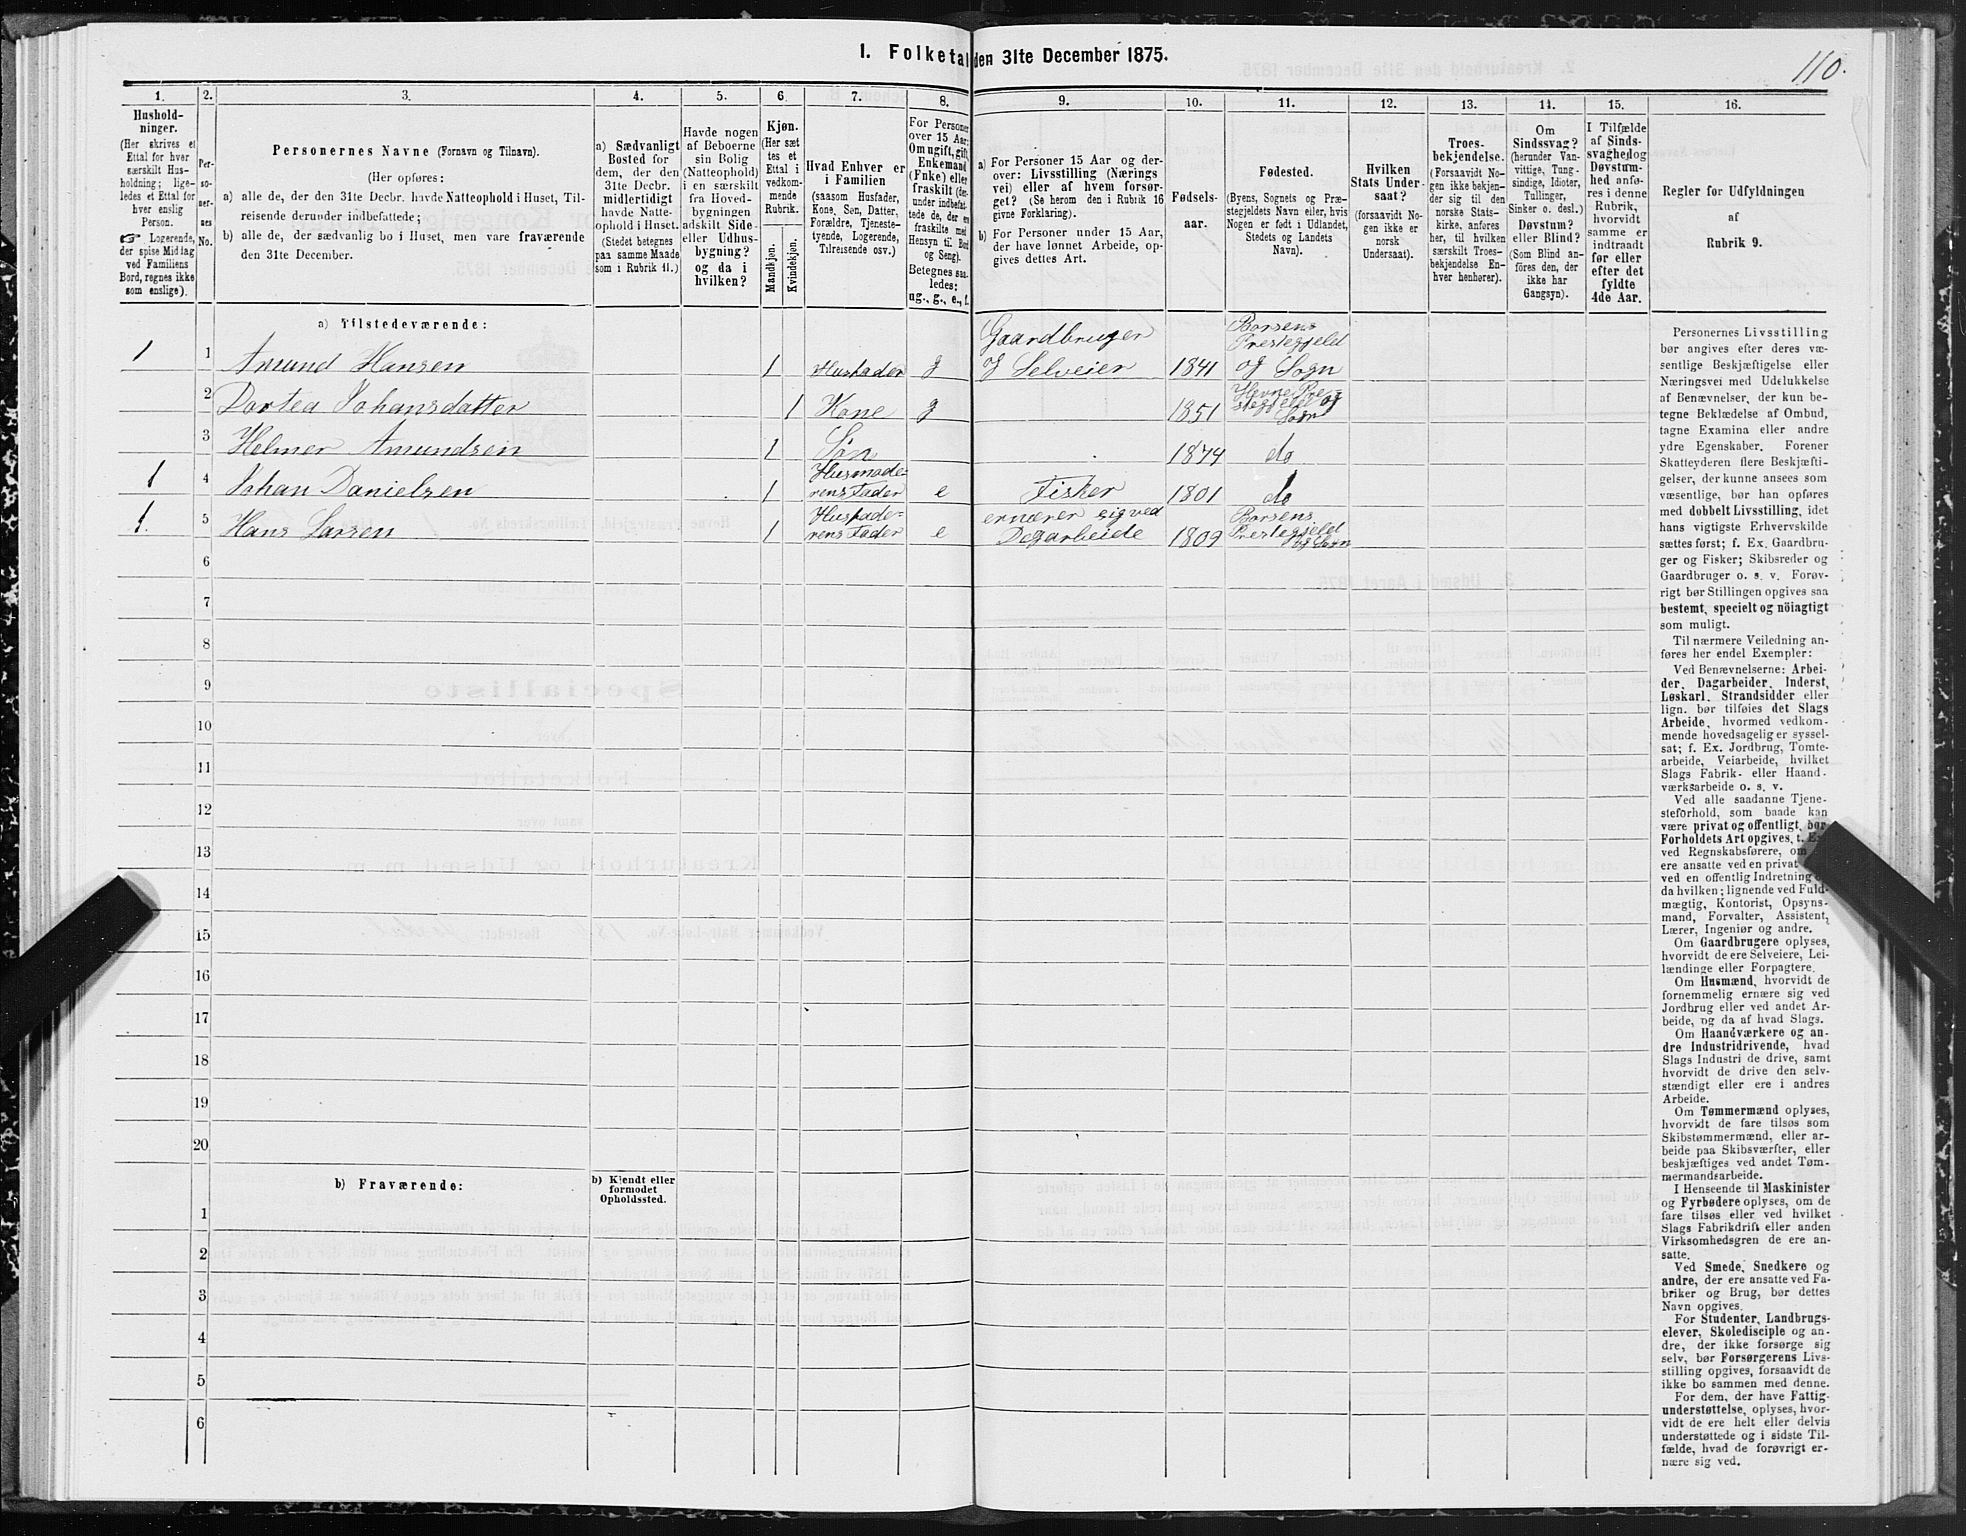 I. Folketal den 31te December 1875.
110.
1.
2.
3.
4.
5.
6.
7.
8.
9.
10.
11.
12.
13.
14.
15.
16.
Hushold-
ninger.
(Her skrives et
Ettal for hver
særskilt Hus-
holdning; lige-
ledes et Ettal for
hver enslig
Person.
☞ Logerende,
der spise Middag
ved Familiens
Bord, regnes ikke
som enslige).
Per-
so-
ner-
nes
No.
Personernes Navne (Fornavn og Tilnavn).
(Her opføres:
a) alle de, der den 31te Decbr. havde Natteophold i Huset, Til-
reisende derunder indbefattede;
b) alle de, der sædvanlig bo i Huset, men vare fraværende
den 31te December.
a) Sædvanligt
Bosted for
dem, der den
31te Decbr.
midlertidigt
havde Natte-
ophold i Huset.
(Stedet betegnes
paa samme Maade
som i Rubrik 11.)
Havde nogen
af Beboerne
sin Bolig
(Natteophold)
i en særskilt
fra Hoved-
bygningen
adskilt Side-
eller Udhus-
bygning?
og da i
hvilken?
Kjøn.
(Her sæt
tes et
Ettal i
vedkom-
mende
Rubrik.
Mandkjøn.
Kvindekjøn.
Hvad Enhver er
i Familien
(saasom Husfader,
Kone, Søn, Datter,
Forældre, Tjeneste-
tyende, Logerende,
Tilreisende osv.)
For Personer
over 15 Aar:
Om ugift, gift,
Enkemand
(Enke) eller
fraskilt (der-
under indbefat-
tede de, der ere
fraskilte med
Hensyn til Bord
og Seng).
Betegnes saa-
ledes:
ug., g., e., f.
a) For Personer 15 Aar og der-
over: Livsstilling (Nærings
vei) eller af hvem forsør-
get? (Se herom den i Rubrik 16
givne Forklaring).
b) For Personer under 15 Aar,
der have lønnet Arbeide, op-
gives dettes Art.
Fødsels-
aar.
Fødested.
(Byens, Sognets og Præ-
stegjeldets Navn eller, hvis
Nogen er født i Udlandet,
Stedets og Landets
Navn).
Hvilken
Stats Under-
saat?
(forsaavidt No-
gen ikke er
norsk
Undersaat).
Troes-
bekjendelse.
(Forsaavidt No-
gen ikke bekjen-
der sig til den
norske Stats-
kirke, anføres
her, til hvilken
særskilt Troes-
bekjendelse En-
hver henhører).
Om
Sindssvag?
(herunder Van-
vittige, Tung-
sindige, Idioter,
Tullinger,
Sinker o. desl.)
Døvstum?
eller Blind?
(Som Blind an-
føres den, der
ikke har
Gangsyn).
I Tilfælde
af Sinds-
svaghed og
Døvstum-
hed anfø-
res i denne
Rubrik,
hvorvidt
samme er
indtraadt
før eller
efter det
fyldte
4de Aar.
Regler for Udfyldningen
af
Rubrik 9.
a) Tilstedeværende:
1 1 Amund Hansen 1 Husfader g Gaardbruger og Selveier 1841 Borsens Prestegjeld og Sogn
2 Dortea Johansdatter 1 Kone g 1851 Hevne Pre-stegjeld og Sogn
3 Helmer Amundsen 1 Søn 1874 do
1 4 Johan Danielsen 1 Husmode-rens Fader e Fisker 1801 do
1. 5 Hans Larsen 1 Husfade-rens Fader e ernærer sig ved Dagarbeide 1809 Borsens Prestegjeld og Sogn
6
7
8
9
10
11
12
13
14
15
16
17
18
19
20
b) Fraværende:
b) Kjendt eller
formodet
Opholdssted.
1
2
3
4
5
6
Personernes Livsstilling
bør angives efter deres væ-
sentlige Beskjæftigelse eller
Næringsvei med Udelukkelse
af Benævnelser, der kun be-
tegne Beklædelse af Ombud,
tagne Examina eller andre
ydre Egenskaber. Forener
Skatteyderen flere Beskjæfti-
gelser, der kunne ansees som
væsentlige, bør han opføres
med dobbelt Livsstilling, idet
hans vigtigste Erhvervskilde
sættes først; f. Ex. Gaardbru-
ger og Fisker; Skibsreder og
Gaardbruger o. s. v. Forøv-
rigt bør Stillingen opgives saa
bestemt, specielt og nöiagtigt
som muligt.
Til nærmere Veiledning an-
føres her endel Exempler:
Ved Benævnelserne: Arbei-
der, Dagarbeider, Inderst,
Løskarl, Strandsidder eller
lign. bør tilføies det Slags
Arbeide, hvormed vedkom-
mende hovedsagelig er syssel-
sat; f. Ex. Jordbrug, Tomte-
arbeide, Veiarbeide, hvilket
Slags Fabrik- eller Haand-
værksarbeide o. s. v.
Ved alle saadanne Tjene-
steforhold, som baade kan
være privat og offentligt, bør
Forholdets Art opgives, t. Ex.
ved Regnskabsførere, om
ere ansatte ved en privat
ved en offentlig Indretning
da hvilken; lignende ved Fuld-
mægtig, Kontorist, Opsyns-
mand, Forvalter, Assistent,
Lærer, Ingeniør og andre.
Om Gaardbrugere oplyses,
hvorvidt de ere Selveiere, Lei-
lændinge eller Forpagtere.
Om Husmænd, hvorvidt de
fornemmelig ernære sig ved
Jordbrug eller ved andet Ar-
beide, og da af hvad Slags.
Om Haandværkere og an-
dre Industridrivende, hvad
Slags Industri de drive, samt
hvorvidt de drive den selv-
stændigt eller ere i andres
Arbeide.
Om Tømmermænd oplyses,
hvorvidt de fare tilsøs som
Skibstømmermænd, eller ar-
beide paa Skibsværfter, eller
beskjæftiges ved andet Tøm-
mermandsarbeide.
I Henseende til Maskinister
og Fyrbødere oplyses, om de
fare tilsøs eller ved hvilket
Slags Fabrikdrift eller anden
Virksomhedsgren de ere an-
satte.
Ved Smede, Snedkere og
andre, der ere ansatte ved Fa-
briker og Brug, bør dettes
Navn opgives.
For Studenter, Landbrugs-
elever, Skoledisciple og an-
dre, der ikke forsørge sig
selv, bør Forsørgerens Livs-
stilling opgives, forsaavidt de
ikke bo sammen med denne.
For dem, der have Fattig-
understøttelse, oplyses, hvor-
vidt de ere helt eller delvis
understøttede og i sidste Til-
fælde, hvad de forøvrigt er-
nære sig ved.